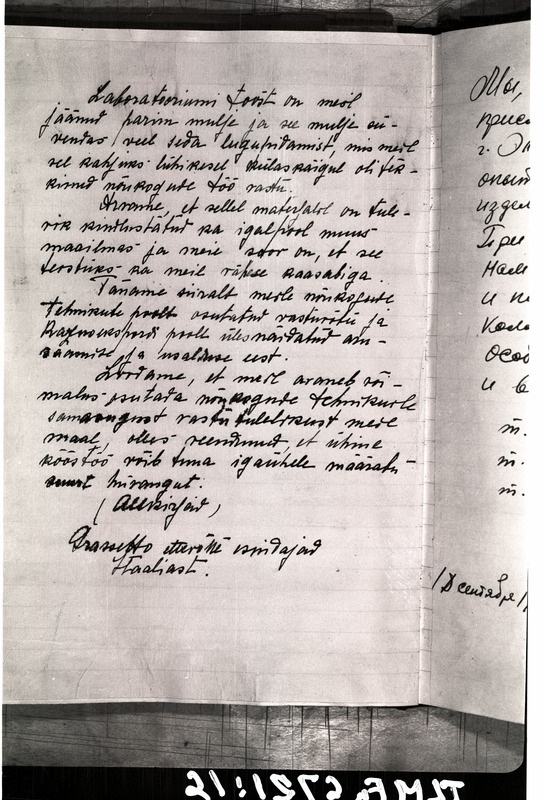 Laboratooriumi tööst on meil
jäänud parim mulje ja see mulje sü-
vendas veel seda lugupidamist, mis meil
sel kahjuks lühikesel külaskäigul oli tek-
kinud nõukogude töö vastu.
Arvame, et sellel materjalil on tule-
vik kindlustatud ka igalpool muus
maailmas ja meie soov on, et see
teostuks ka meil rähese kaasabiga.
Täname siiralt meile nõukogude
tehnikute poolt osutatud vastuvõtu ja
Raznoeksport poolt ülesnäidatud aru-
saamise ja usalduse eest.
Loodame, et meil avaneb või-
malus osutada nõukogude tehnikuile
samasugust vastutulelikust meie
maal, olles veendunud, et ühine
koostöö võib tuua igaühele määratu
suurt hüvangut.
(Allkirjad)
Grassetto ettevõtte esindajad
Itaaliast.
Мы,
присе
г.
опыт
издел
При
Нам
и по
Кола
особ
и б
т.
т.
т.
/8 сентября/
TLMF 6721:12